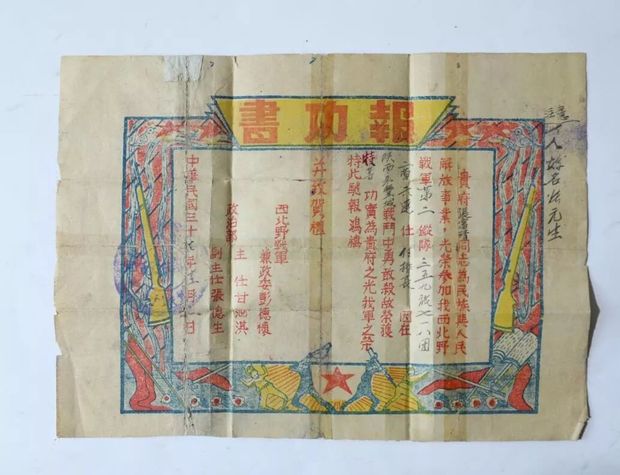 報功書
貴府張富清同志為民族與人民
解放事業，光榮參加我西北野
戰軍第二縱隊三五九旅七一八團
連仕付排長因在
陝西永豐城戰鬥中勇敢殺敵榮獲
特等功實為貴府之光我軍之榮
特此馳報鴻禧
並致賀禮
西北野戰軍
兼政委彭德懷
政治部
主任甘泗淇
副主任張德生
中華民國三十七年月日